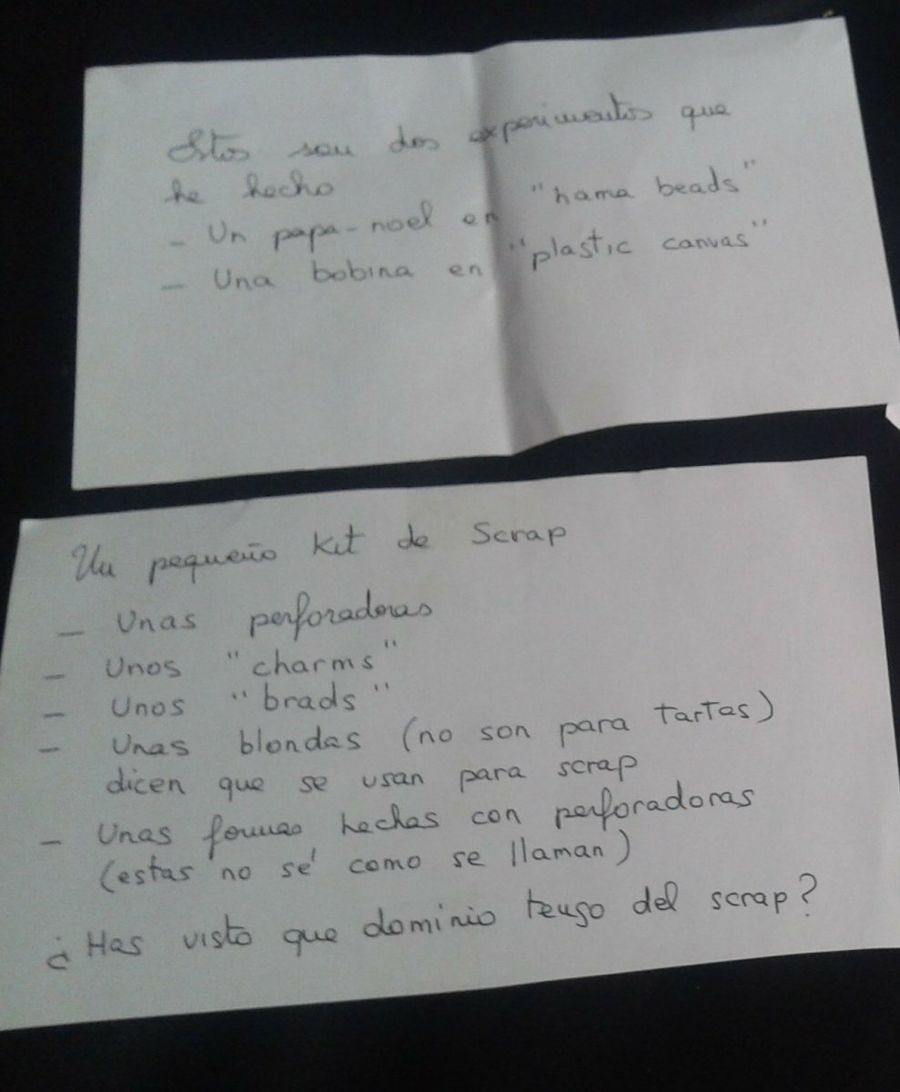 Estos son dos experimentos que
he hecho
- Un papa-noel en "hama beads"
- Una bobina en "plastic canvas"
Un pequeño Kit de Scrap
- Unas perforadoras
- Unos "charms"
- Unos "brads"
- Unas blondas (no son para tartas)
dicen que se usan para scrap
- Unas formas hechas con perforadoras
(estas no sé como se llaman)
¿Has visto que dominio tengo del scrap?